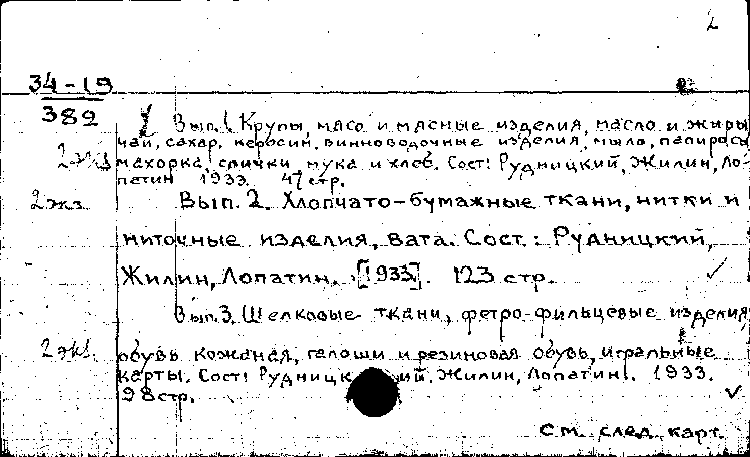 2
34-19
382
Вып.1. Крупы, мясо и мясные изделия, масло и жиры
чай, сахар, керосин, винноводочные изделия, мыло, папиросы
2 экз махорка, спички, мука и хлеб. Сост: Рудницкий, Жилин, Ло-
патин 1933. 47 стр.
2 экз Вып. 2. Хлопчато-бумажные ткани, нитки и
ниточные изделия, вата. Сост.: Рудницкий,
Жилин, Лопатин. [1933]. 123 стр.
Вып.3. Шелковые ткани, фетро-фильцевые изделия,
2 экз. обувь кожаная, галоши и резиновая обувь, игральные
карты. Сост: Рудницкий, Жилин, Лопатин. 1933.
98 стр.
См. след. карт.